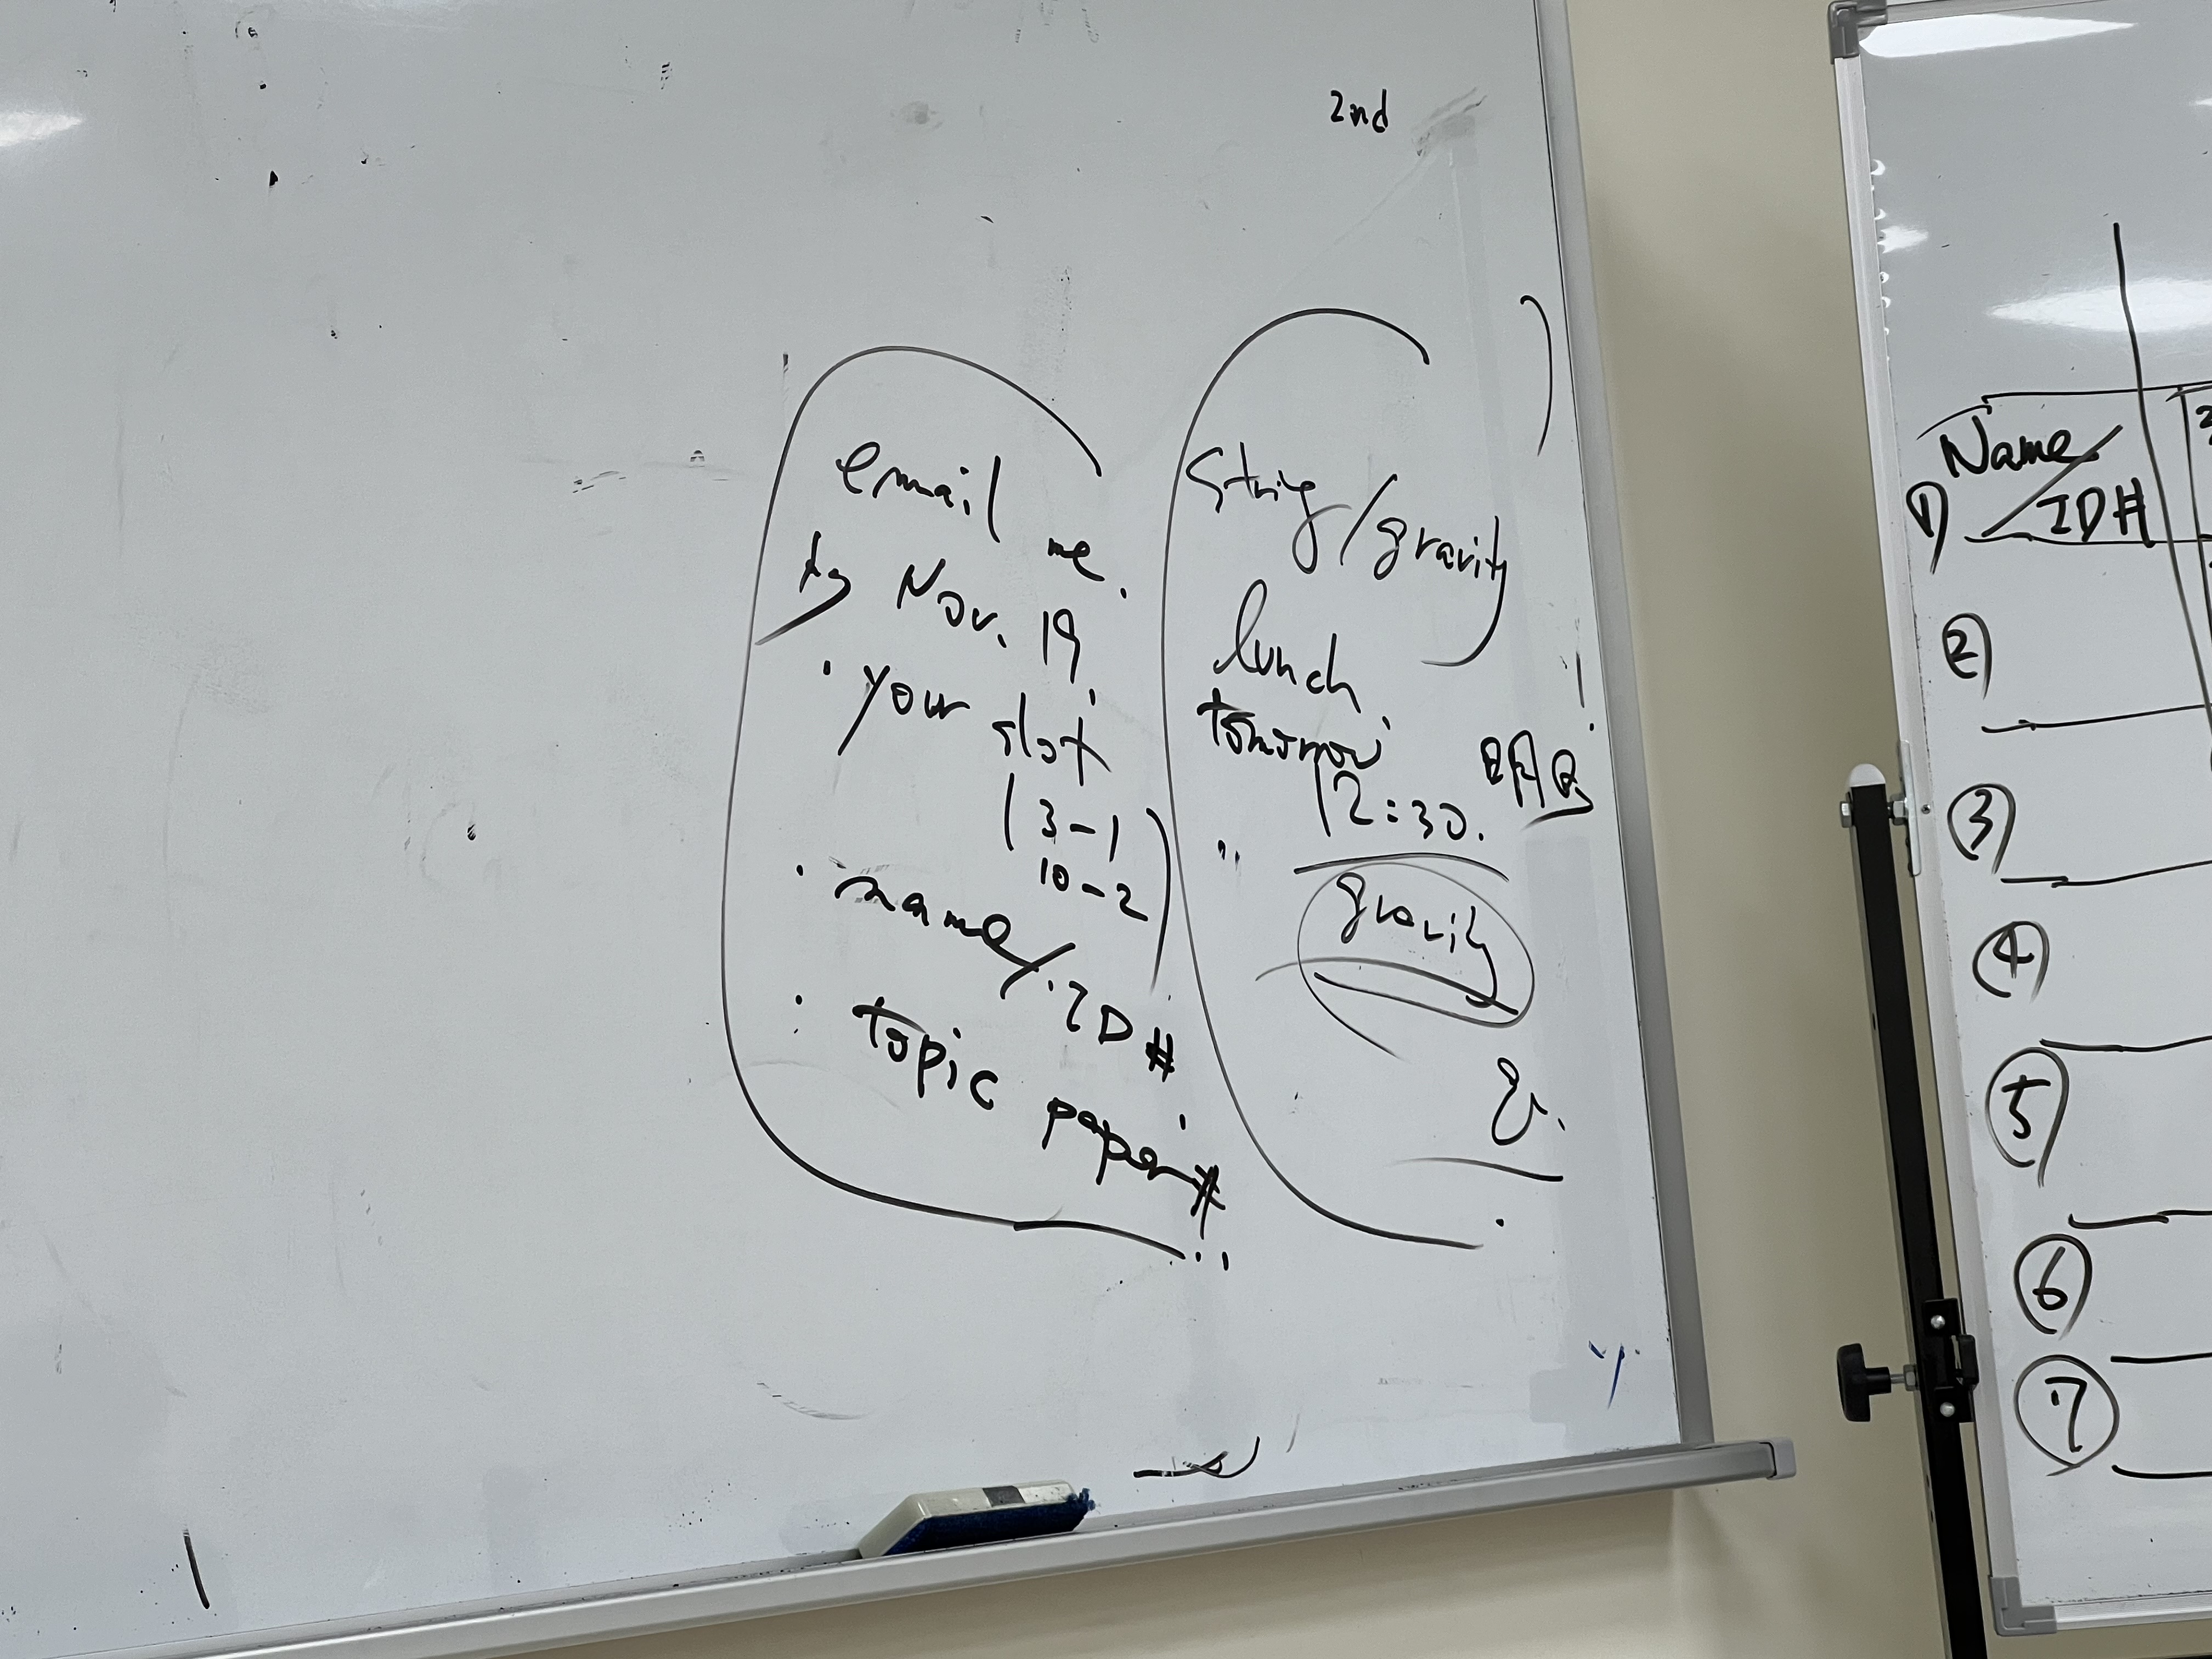 2nd
email me.
by Nov. 19
· your slot
(3-1
10-2)
· name/ID#
· topic paper#
String/gravity
lunch
tomorrow
12:30.
gravity
Name/ID#
①
②
③
④
⑤
⑥
⑦